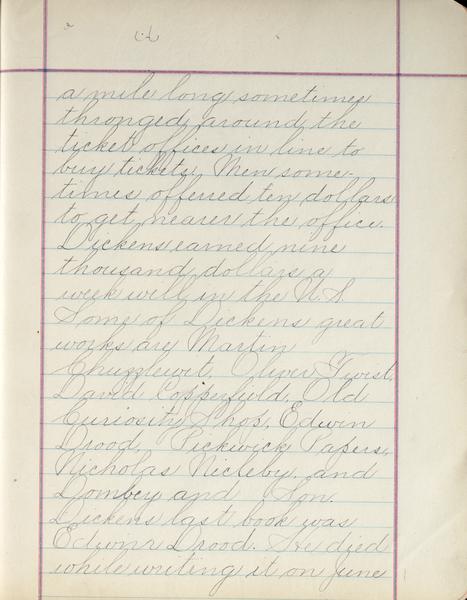 a mile long sometimes
thronged around the
ticket offices in line to
buy tickets. Men some-
times offerred ten dollars
to get nearer the office.
Dickens earned nine
thousand dollars a
week will in the U.S.
Some of Dickens great
works are Martin
Chuzzlewit, Oliver Twist,
David Copperfield, Old
Curiosity Shop, Edwin
Drood, Pickwick Papers,
Nicholas Nicleby, and
Dombey and Son.
Dickens last book was
Edwin Drood. He died
while writing it on June